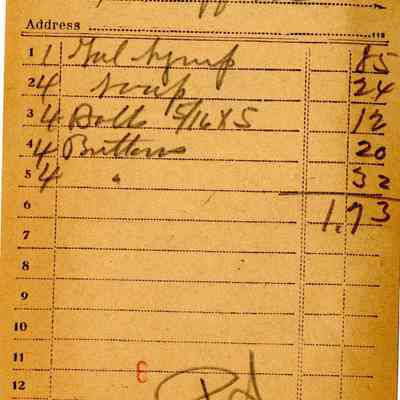 Address
1 1 Gal Syrup 85
2 4 Soap 24
3 4 Bolts 5/16 x 5 12
4 4 Buttons 20
5 4 " 32
6 1.73
7
8
9
10
11
12
8
Pd